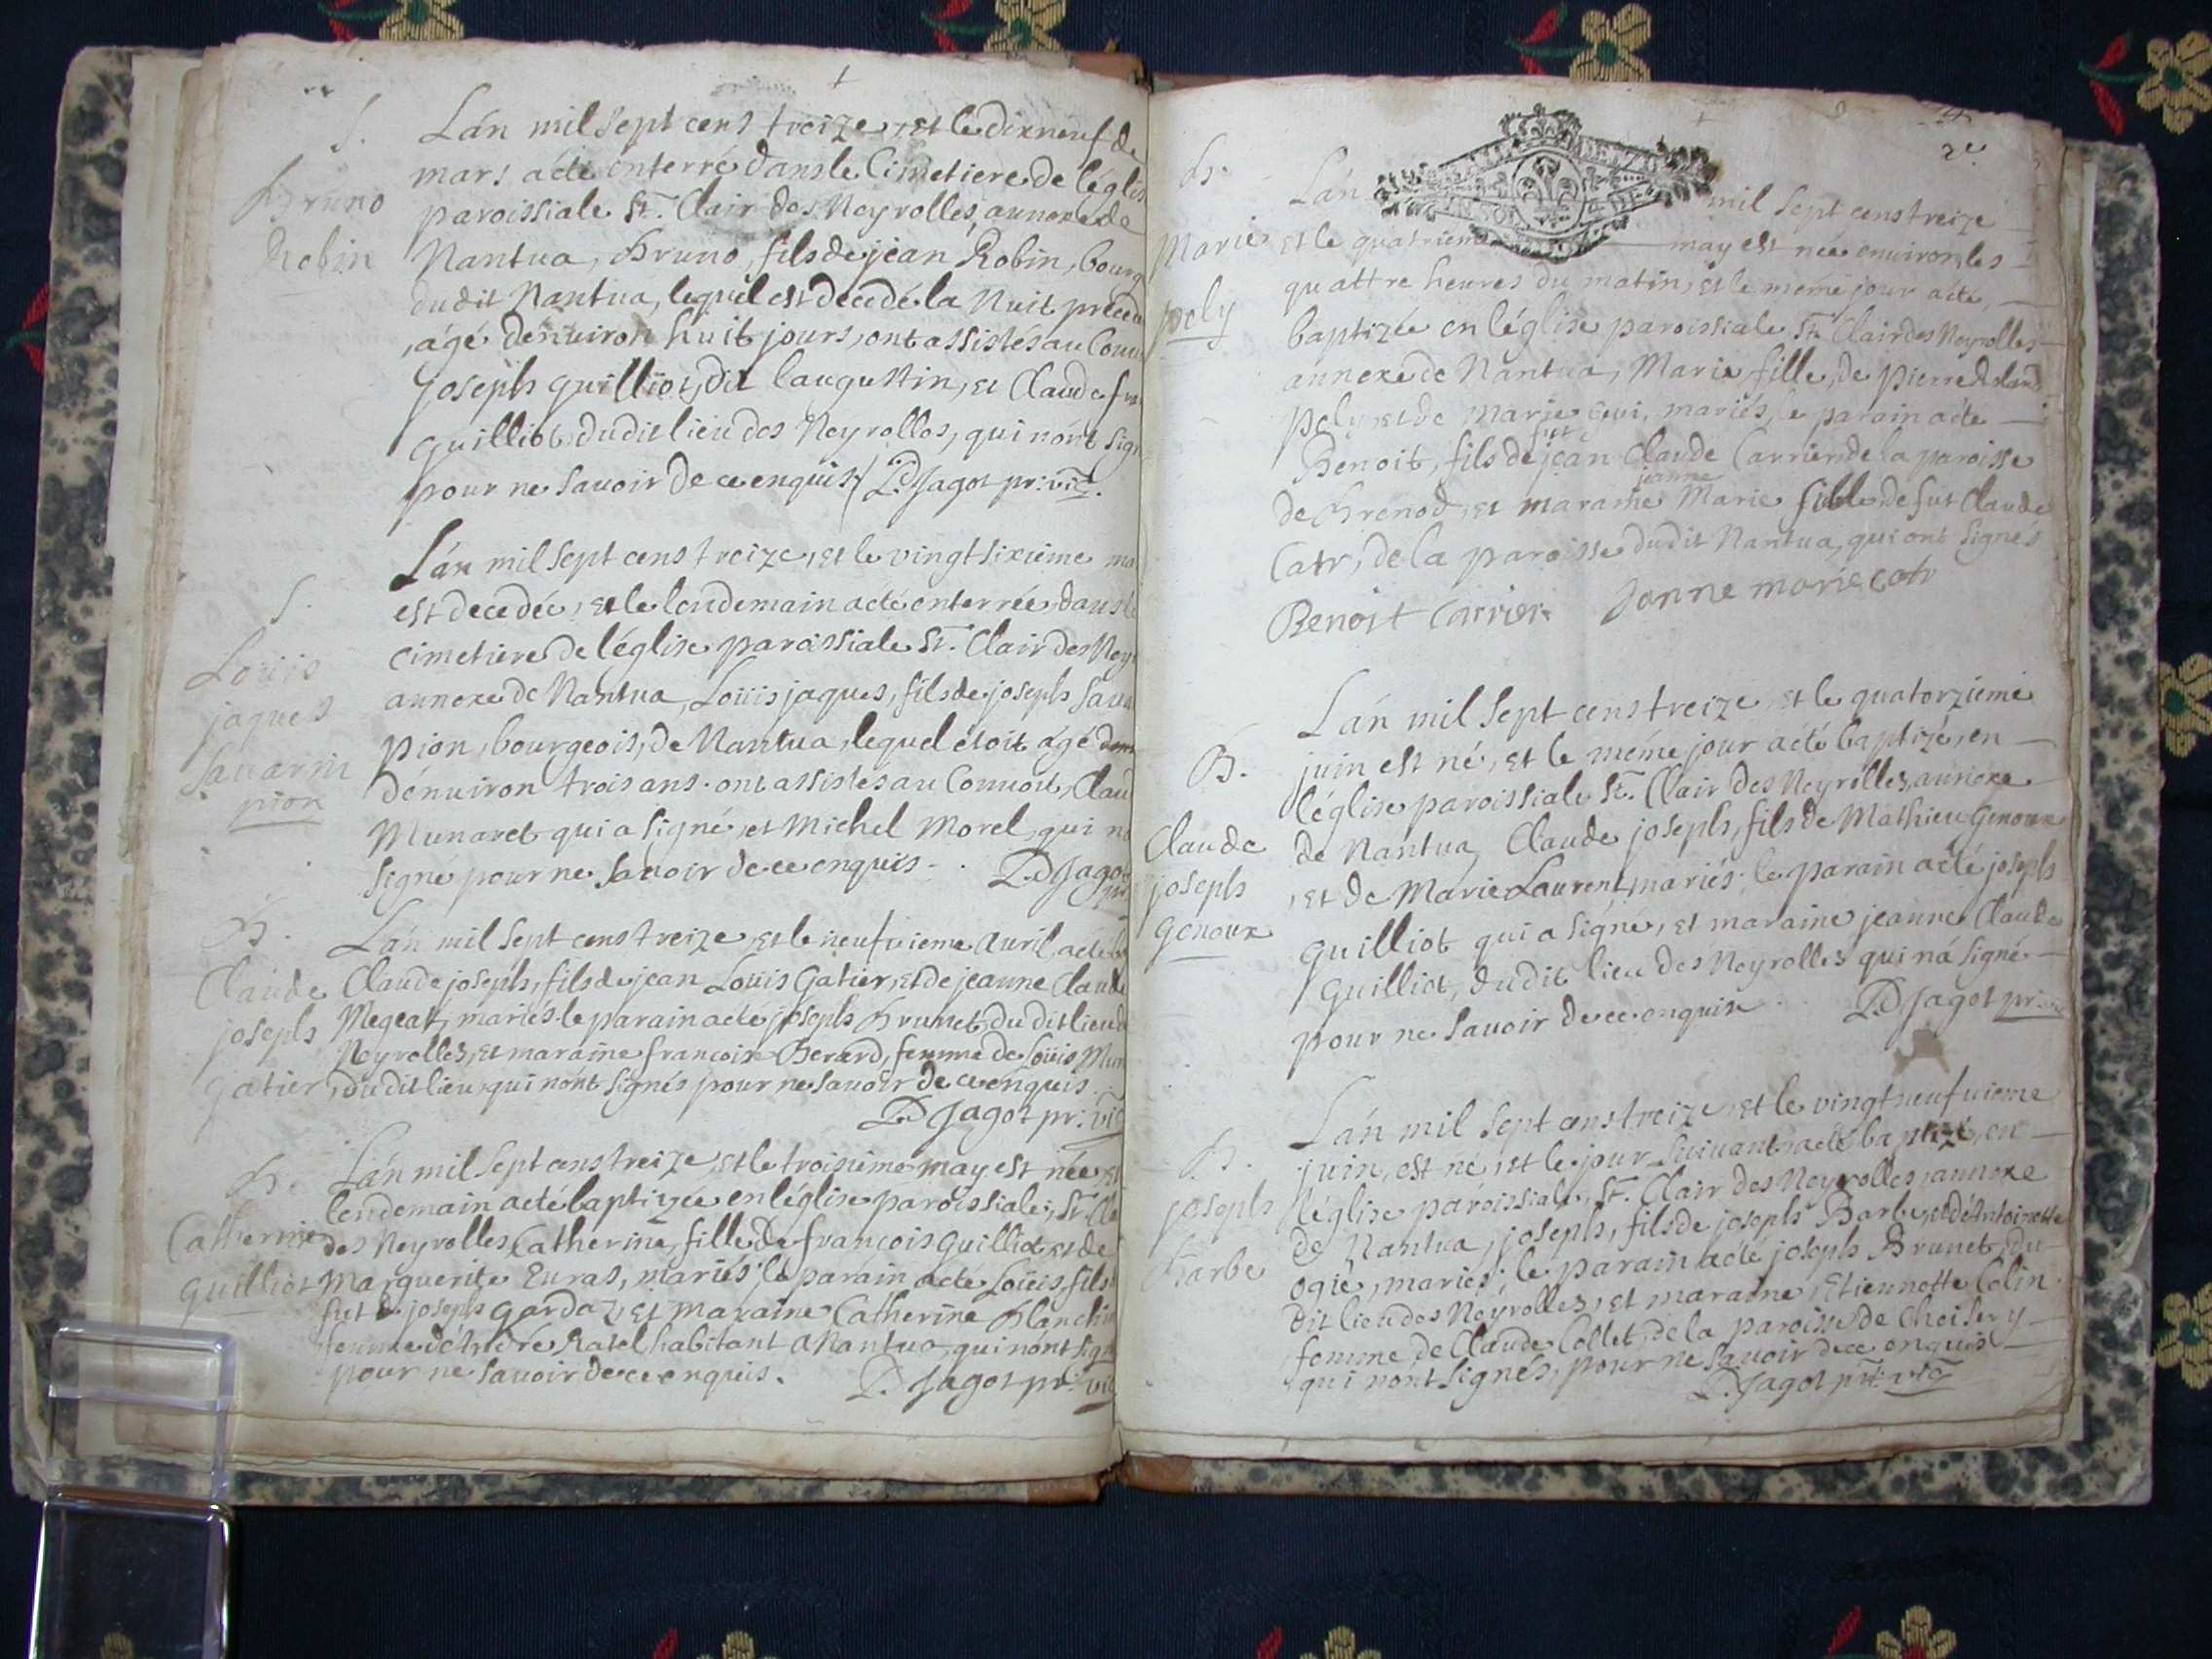 S.
Bruno
Robin
Lán mil sept cens treize, et le dixneuf de
mars a été enterré dans le Cimetiere de léglise
paroissiale St. Clair des Neyrolles, annexe de
Nantua, Bruno, fils de jean Robin, bourg
dudit Nantua, lequel est decedé la Nuit preced
, agé dénuiron huit jours, ont assistés au Conu
joseph guilliot, dit laugustin, et Claude fra
guilliot, dudit lieu des Neyrolles, qui nont sign
pour ne sauoir de ce enquis / D Jagot pr: vic.
S.
Loüis
jaques
Sauarin
pion
Lán mil sept cens treize, et le vingt sixième ma
est decedée, et le lendemain a été enterrée, dans le
cimetiere de léglise paroissiale St. Clair des Ney
annexe de Nantua, Loüis jaques, fils de joseph Saua
pion, bourgeois, de Nantua, lequel étoit agé
dénuiron trois ans. ont assistés au Conuoit, Clau
Munaret qui a signé, et Michel Morel, qui na
signé pour ne sauoir de ce enquis. D Jagot
B.
Claude
joseph
gatier
Lán mil sept cens treize, et le neufuieme auril, a été b
Claude joseph, fils de jean Loüis Gatier, et de jeanne Claude
Megeat, mariés. le parain a été joseph Brunet, du dit lieu d
Neyrolles, et maraine francoise Berard, femme de Loüis Mun
, dudit lieu, qui nónt signés pour ne sauoir de ce enquis.
D Jagot pr: vic
B.
Catherine
guilliot
Lán mil sept cens treize, et le troisième may est née, et
lendemain a été baptizée en léglise paroissiale, St. Cla
des Neyrolles, Catherine, fille de francois guilliot, et de
Marguerite Euras, mariés. le parain a été Loüis, fils
fut de joseph gardaz, et maraine Catherine Blanchin
femme dé Andre Ratel habitant a Nantua, qui nónt sign
pour ne sauoir de ce enquis. D. Jagot pr: vic
2e
B.
Marie
poly
Lán mil sept cens treize
et le quatrieme may est née enuiron les
quattre heures du matin, et le méme jour a été,
baptizée en léglise paroissiale St. Clair des Neyrolles
annexe de Nantua, Marie, fille, de pierre
poly, et de Marie Cuui, mariés, le parain a été
Benoit, fils de fut jean Claude Carrier de la paroisse
de Brenod, et maraine jeanne Marie fille de fut Claude
Catr, de la paroisse dudit Nantua, qui ont signés
Benoist Carrier Janne marie catr
B.
Claude
joseph
genoux
Lán mil sept cens treize, et le quatorzieme
juin est né, et le méme jour a été baptizé, en
léglise paroissiale St. Clair des Neyrolles, annexe
de Nantua, Claude joseph, fils de Mathieu Genoux
, et de Marie Laurent, mariés; le parain a été joseph
guilliot qui a signé, et maraine jeanne Claude
guilliot, dudit lieu des Neyrolles qui ná signé
pour ne sauoir de ce enquise. D Jagot pr:
B.
joseph
barbe
Lán mil sept cens treize, et le vingt neufuieme
juin, est né, et le jour suiuant, a été baptizé, en
léglise paroissiale, St. Clair des Neyrolles, annexe
de Nantua, joseph, fils de joseph Barbe, et dé Antoinette
ogie, mariés; le parain a été joseph Brunet, du
dit lieu des Neyrolles, et maraine, Etiennette Colin
femme de Claude Collet, de la paroisse de Choisery
qui nont signés, pour ne sauoir de ce enquis
D. Jagot pr: vic